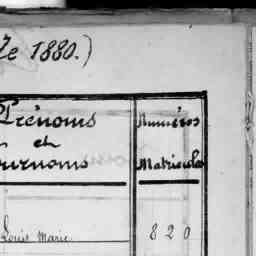 de 1880.)
Prénoms
et
Surnoms
Numéros
Matricules
Louis Marie
820